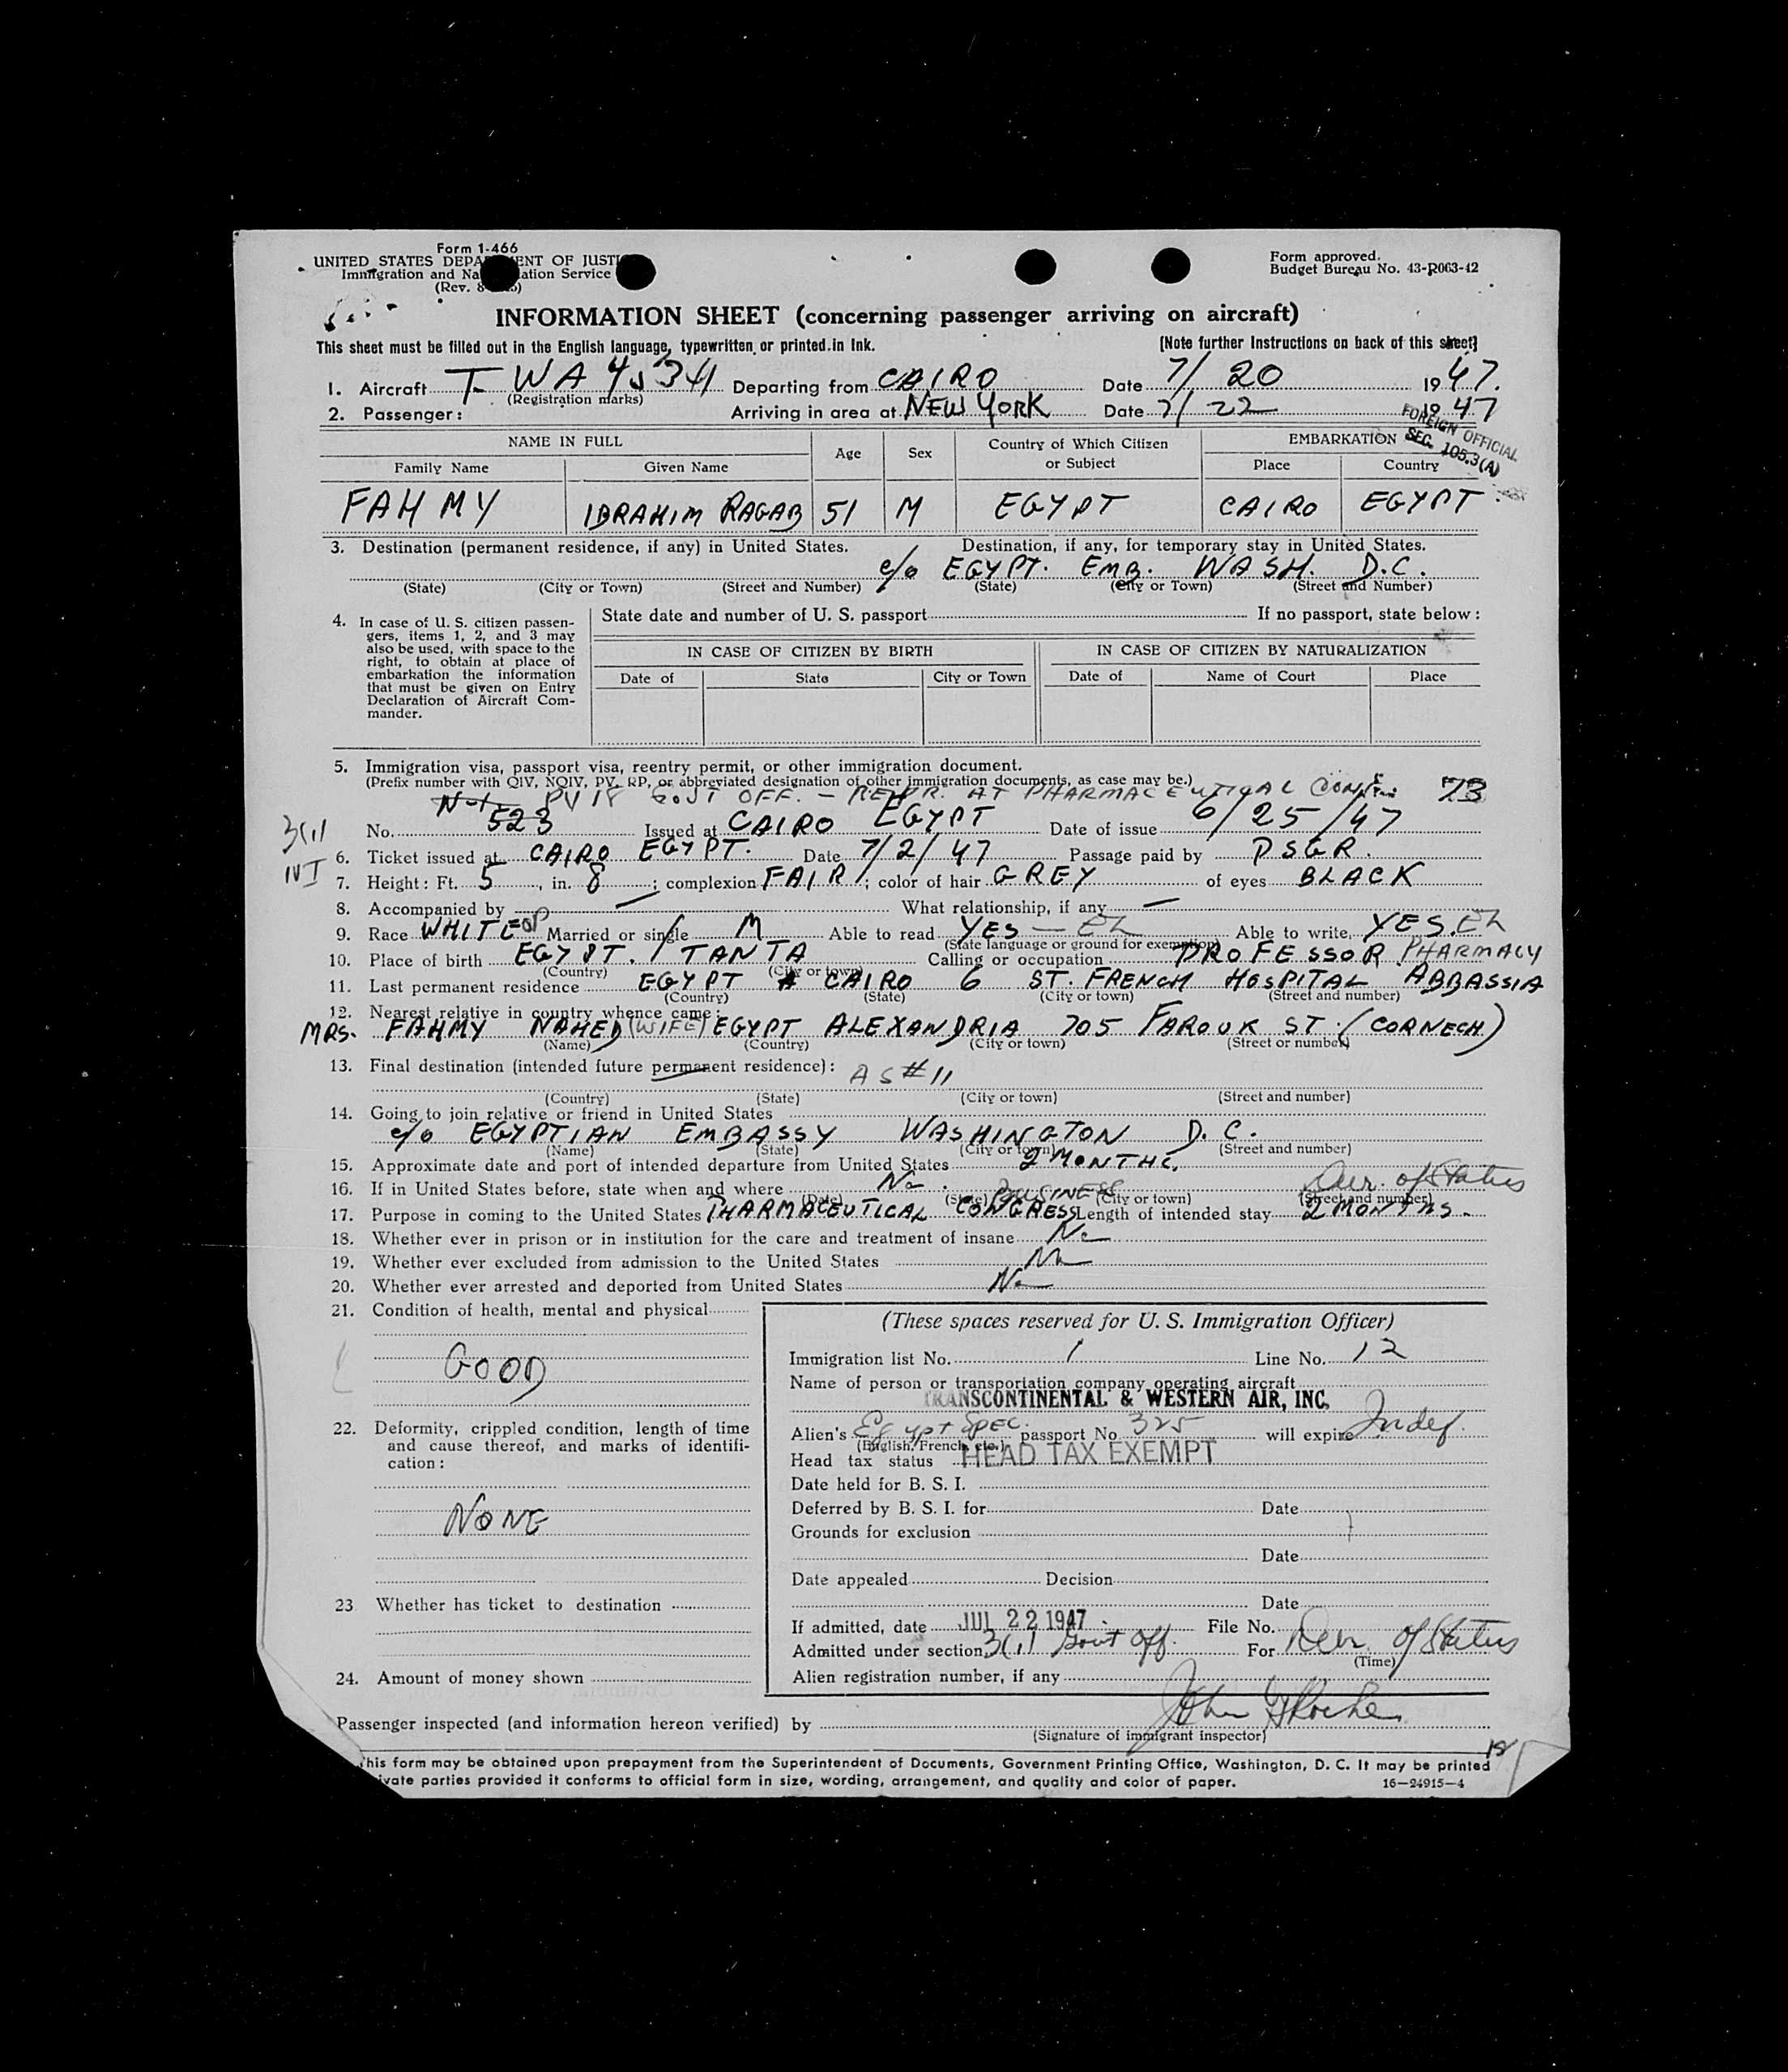 Form 1-466
UNITED STATES DEPA ENT OF JUSTI
Immigration and Na ation Service
(Rev. 8
Form approved.
Budget Bureau No. 43-R063-42
INFORMATION SHEET (concerning passenger arriving on aircraft)
This sheet must be filled out in the English language, typewritten or printed in ink. [Note further Instructions on back of this sheet]
1. Aircraft T-WA 45341 Departing from CAIRO Date 7/20 1947.
(Registration marks)
2. Passenger: Arriving in area at NEW YORK Date 7/22 1947
FOREIGN OFFICIAL
SEC. 105.3(A)
NAME IN FULL Age Sex Country of Which Citizen or Subject EMBARKATION
Family Name Given Name Place Country
FAHMY IBRAHIM RAGAB 51 M EGYPT CAIRO EGYPT
3. Destination (permanent residence, if any) in United States. Destination, if any, for temporary stay in United States.
c/o EGYPT. EMB. WASH. D.C.
(State) (City or Town) (Street and Number) (State) (City or Town) (Street and Number)
4. In case of U. S. citizen passen-
gers, items 1, 2, and 3 may
also be used, with space to the
right, to obtain at place of
embarkation the information
that must be given on Entry
Declaration of Aircraft Com-
mander.
State date and number of U. S. passport If no passport, state below:
IN CASE OF CITIZEN BY BIRTH IN CASE OF CITIZEN BY NATURALIZATION
Date of State City or Town Date of Name of Court Place
5. Immigration visa, passport visa, reentry permit, or other immigration document.
(Prefix number with QIV, NQIV, PV, RP, or abbreviated designation of other immigration documents, as case may be.)
PV 18 GOVT OFF. - REPR. AT PHARMACEUTICAL 73
No. 523 Issued at CAIRO EGYPT Date of issue 6/25/47
3(1)
6. Ticket issued at CAIRO EGYPT. Date 7/2/47 Passage paid by PSGR.
7. Height: Ft. 5, in. 8; complexion FAIR; color of hair GREY of eyes BLACK
8. Accompanied by — What relationship, if any —
9. Race WHITE Married or single M Able to read YES — Able to write, YES.
(State language or ground for exemption)
10. Place of birth EGYPT. / TANTA Calling or occupation PROFESSOR PHARMACY
(Country) (City or town)
11. Last permanent residence EGYPT CAIRO 6 ST. FRENCH HOSPITAL ABBASSIA
(Country) (State) (City or town) (Street and number)
12. Nearest relative in country whence came:
MRS. FAHMY NAHED (WIFE) EGYPT ALEXANDRIA 705 FAROUK ST. (CORNECH)
(Name) (Country) (City or town) (Street or number)
13. Final destination (intended future permanent residence): AS #11
(Country) (State) (City or town) (Street and number)
14. Going to join relative or friend in United States
c/o EGYPTIAN EMBASSY WASHINGTON D.C.
(Name) (State) (City or town) (Street and number)
15. Approximate date and port of intended departure from United States 2 MONTHS.
16. If in United States before, state when and where No. Dur. of Status
(Date) (State) (City or town) (Street and number)
BUSINESS
17. Purpose in coming to the United States PHARMACEUTICAL CONGRESS Length of intended stay 2 MONTHS.
18. Whether ever in prison or in institution for the care and treatment of insane No
19. Whether ever excluded from admission to the United States No
20. Whether ever arrested and deported from United States No
21. Condition of health, mental and physical
GOOD
22. Deformity, crippled condition, length of time
and cause thereof, and marks of identifi-
cation:
NONE
23 Whether has ticket to destination
24. Amount of money shown
(These spaces reserved for U. S. Immigration Officer)
Immigration list No. 1 Line No. 12
Name of person or transportation company operating aircraft
TRANSCONTINENTAL & WESTERN AIR, INC.
Alien's Egypt Spec. passport No 325 will expire Indef.
(English, French, etc.)
Head tax status HEAD TAX EXEMPT
Date held for B. S. I.
Deferred by B. S. I. for Date
Grounds for exclusion
Date
Date appealed Decision
Date
If admitted, date JUL 22 1947 File No.
Admitted under section 3(1) Govt Off. For Dur. of Status
(Time)
Alien registration number, if any
Passenger inspected (and information hereon verified) by John
(Signature of immigrant inspector)
This form may be obtained upon prepayment from the Superintendent of Documents, Government Printing Office, Washington, D. C. It may be printed
ivate parties provided it conforms to official form in size, wording, arrangement, and quality and color of paper. 16—24915-4